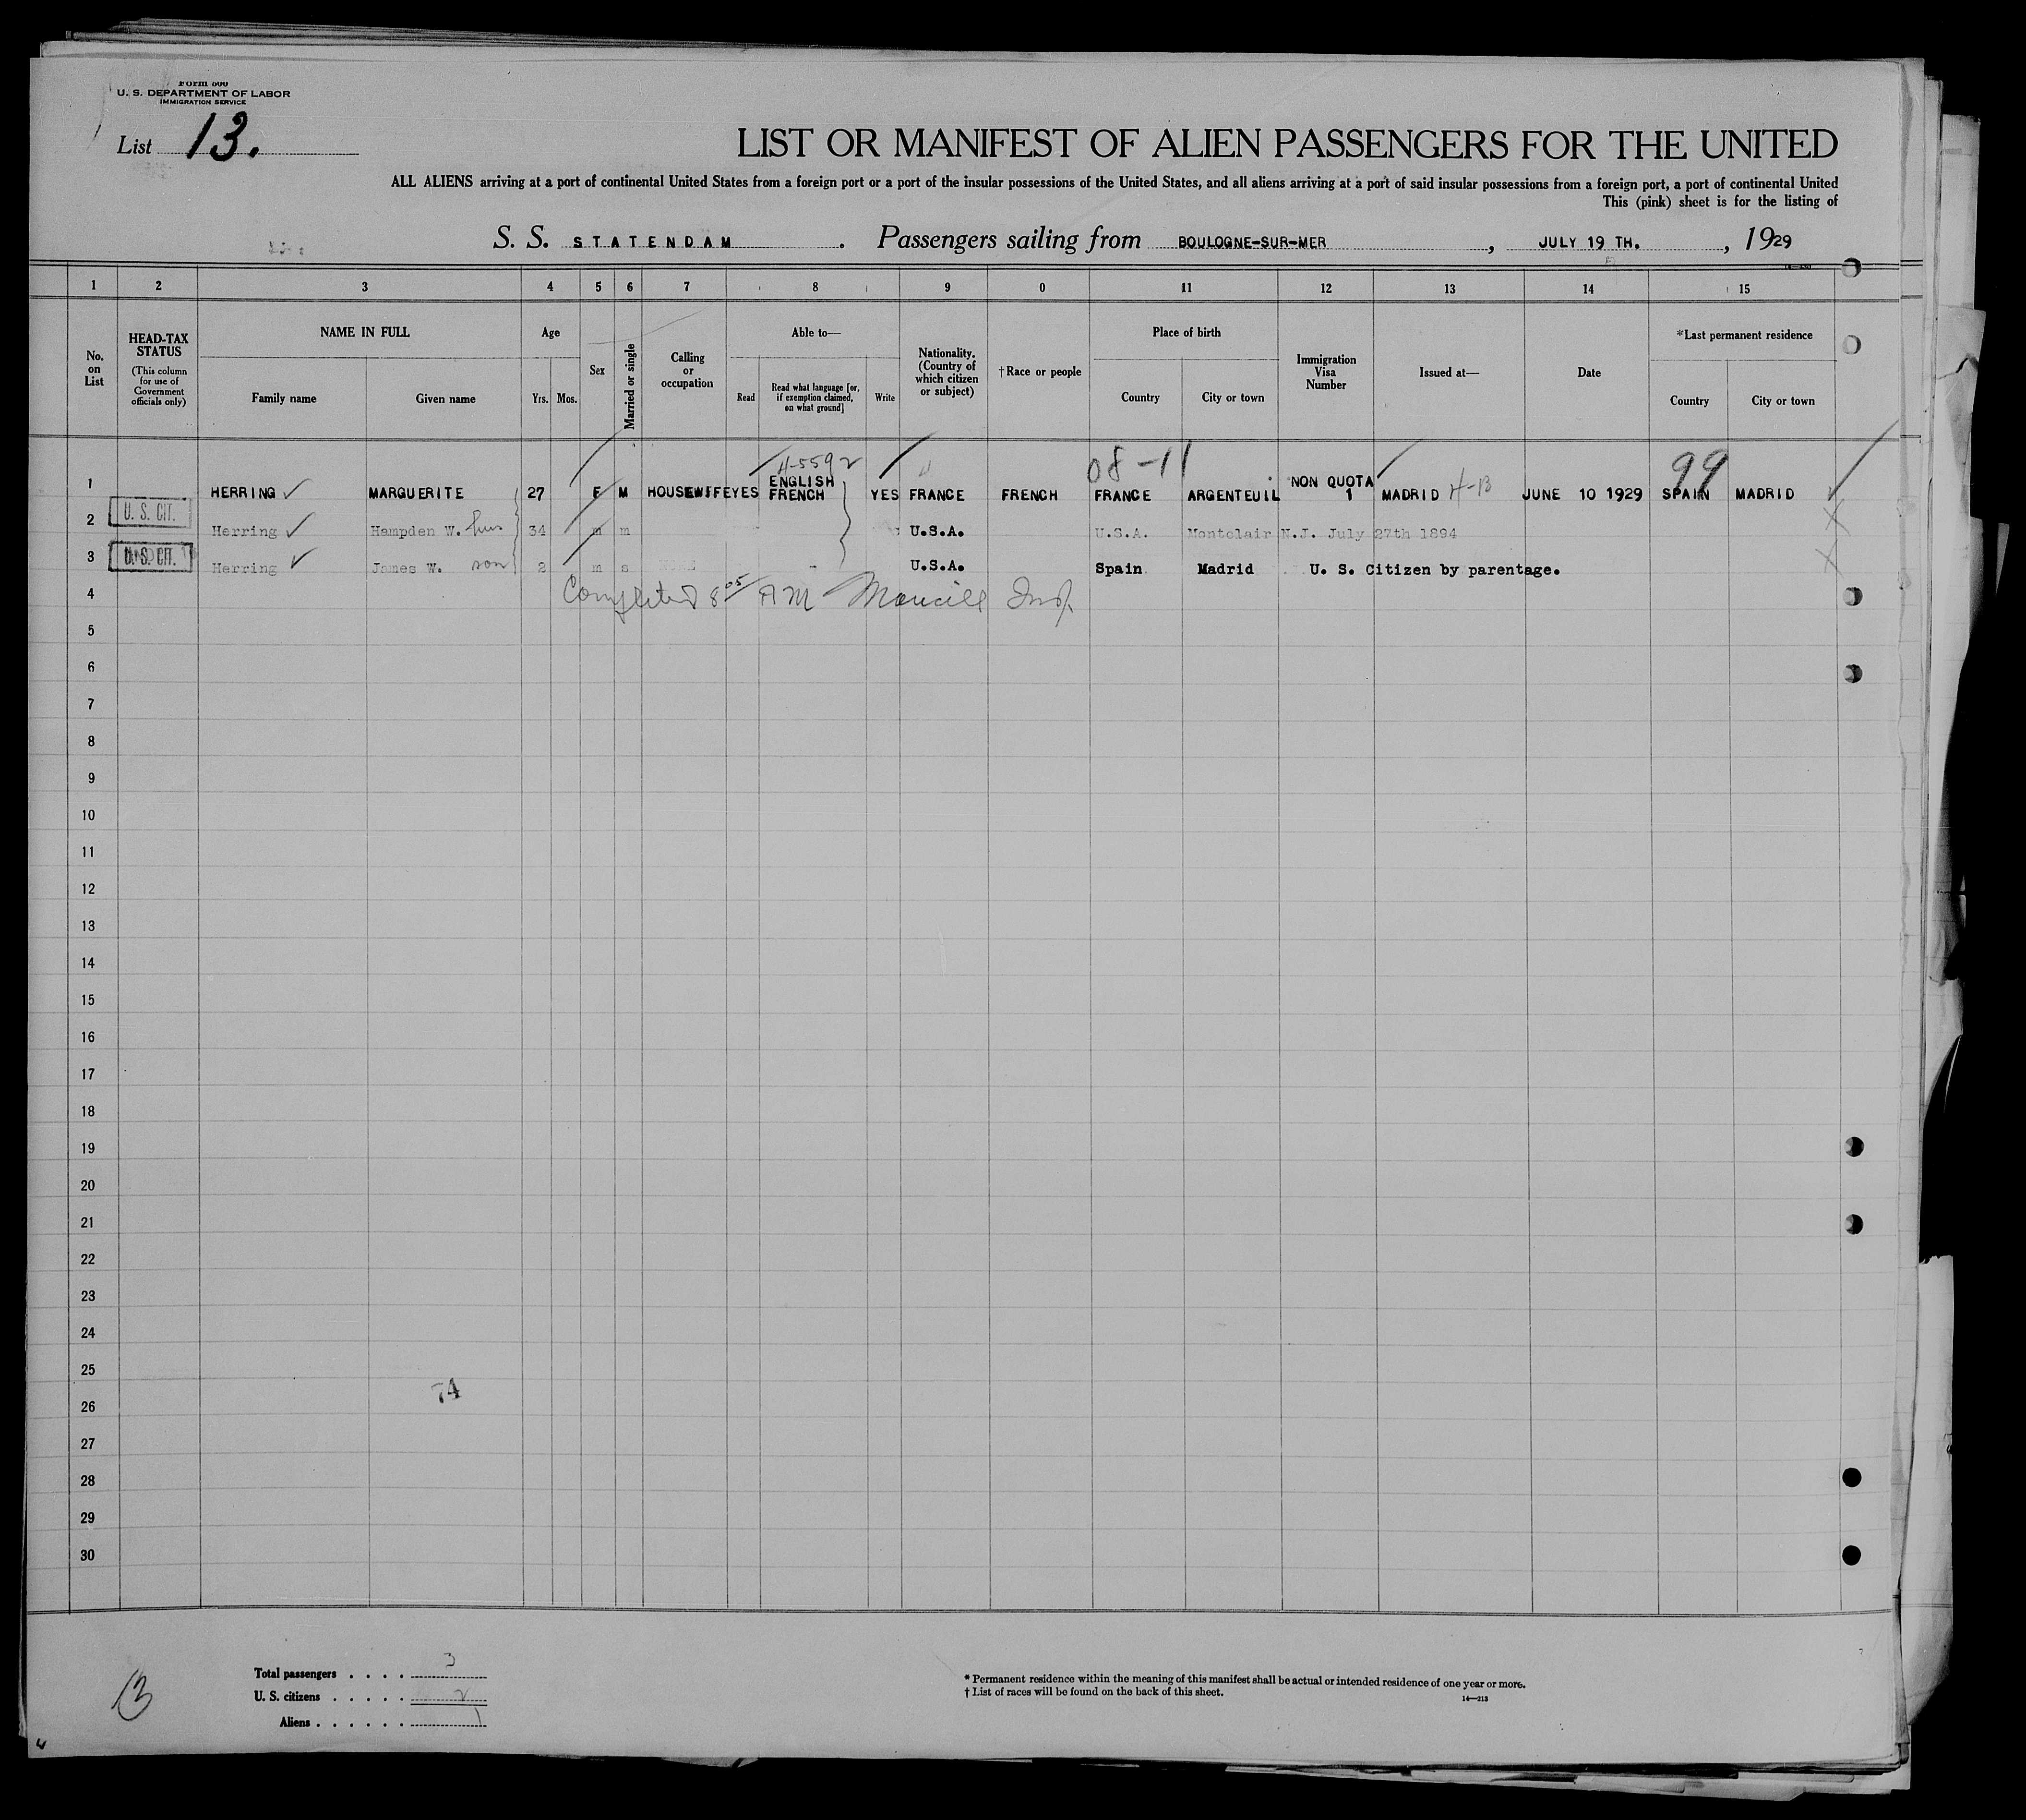 Form 500
U. S. DEPARTMENT OF LABOR
IMMIGRATION SERVICE
List 13.
LIST OR MANIFEST OF ALIEN PASSENGERS FOR THE UNITED
ALL ALIENS arriving at a port of continental United States from a foreign port or a port of the insular possessions of the United States, and all aliens arriving at a port of said insular possessions from a foreign port, a port of continental United
This (pink) sheet is for the listing of
S. S. STATENDAM. Passengers sailing from BOULOGNE-SUR-MER, JULY 19 TH., 1929
1 2 3 4 5 6 7 8 9 0 11 12 13 14 15
No. on List
HEAD-TAX STATUS (This column for use of Government officials only)
NAME IN FULL
Family name Given name
Age
Yrs. Mos.
Sex
Married or single
Calling or occupation
Able to—
Read Read what language [or, if exemption claimed, on what ground] Write
Nationality. (Country of which citizen or subject)
†Race or people
Place of birth
Country City or town
Immigration Visa Number
Issued at—
Date
*Last permanent residence
Country City or town
4-5592 08-11 99
1 HERRING ✓ MARGUERITE 27 F M HOUSEWIFE YES ENGLISH FRENCH YES FRANCE FRENCH FRANCE ARGENTEUIL NON QUOTA 1 MADRID 4-B JUNE 10 1929 SPAIN MADRID
2 U. S. CIT. Herring ✓ Hampden W. hus 34 m m U.S.A. U.S.A. Montclair N.J. July 27th 1894
3 U. S. CIT. Herring ✓ James W. son 2 m s U.S.A. Spain Madrid U. S. Citizen by parentage.
4 Completed 8 05 AM Insp.
5
6
7
8
9
10
11
12
13
14
15
16
17
18
19
20
21
22
23
24
25
74
26
27
28
29
30
Total passengers . . . . 3
U. S. citizens . . . . . 2
Aliens . . . . . . 1
13
* Permanent residence within the meaning of this manifest shall be actual or intended residence of one year or more.
† List of races will be found on the back of this sheet.
14—213